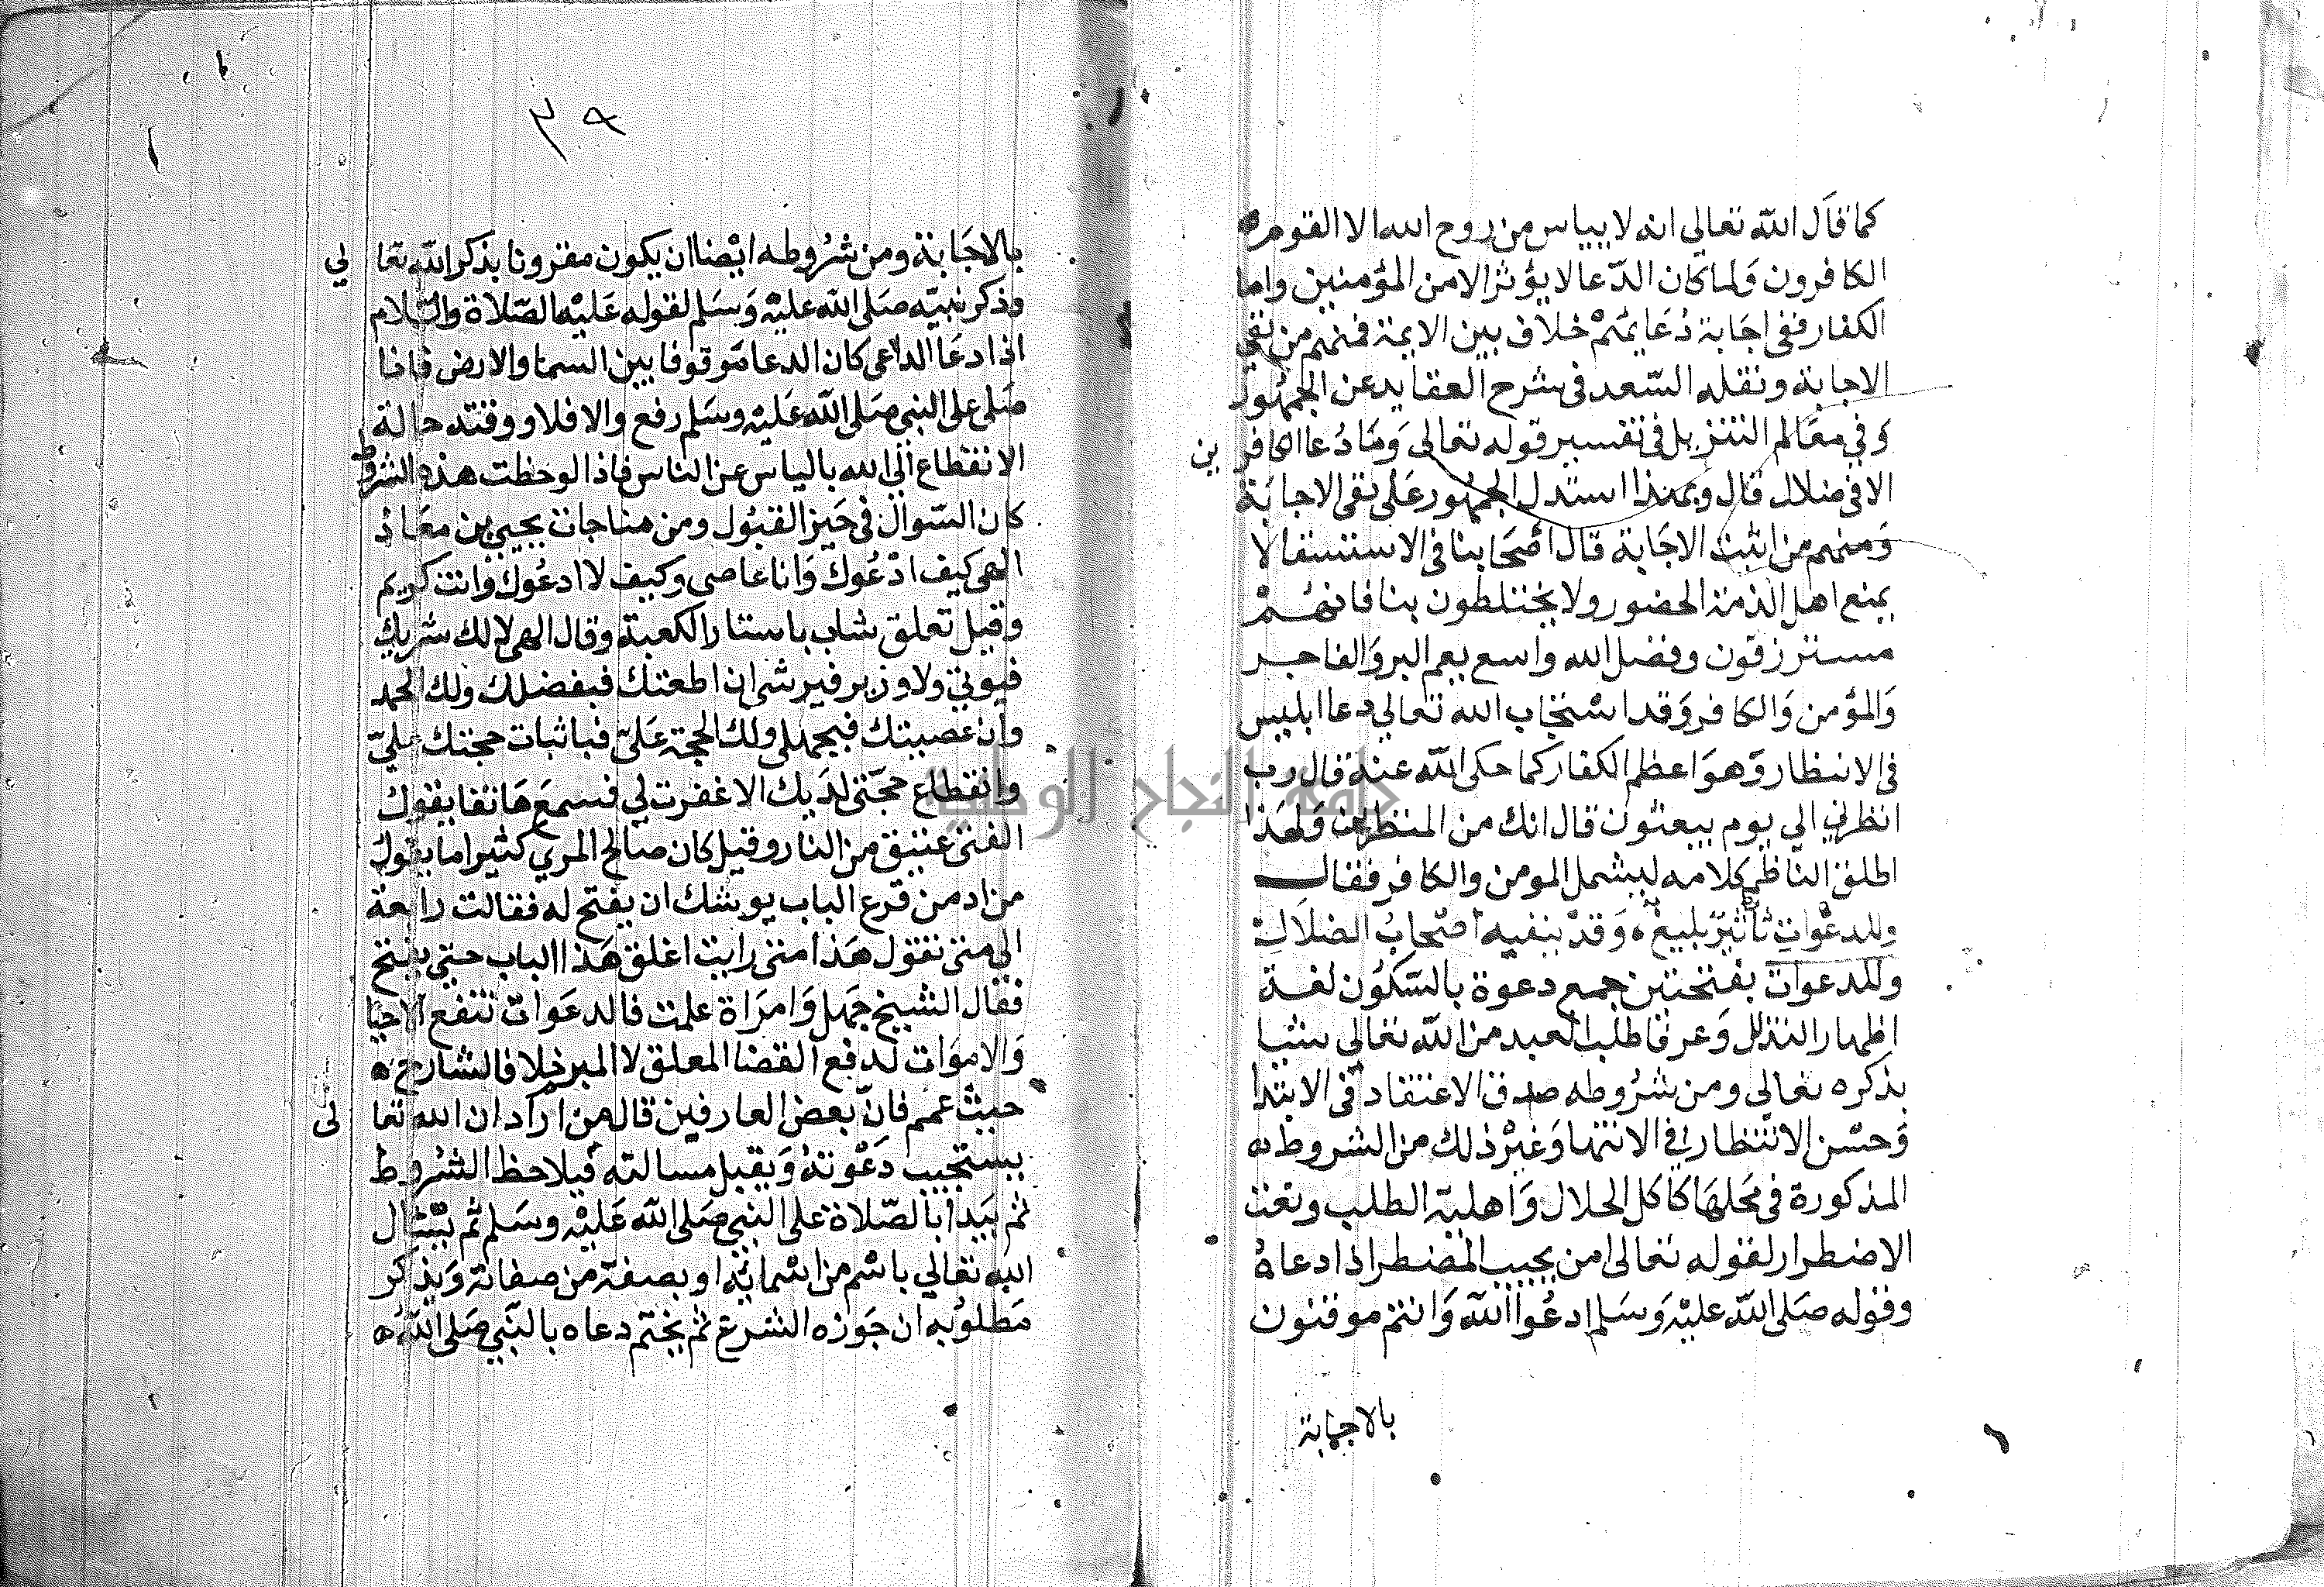 كما قال الله تعالي انه لا يياس من روح الله الا القوم
الكافرون ولما كان الدعا لا يؤثر الا من المؤمنين واما
الكفار ففي اجابة دعايهم خلاف بين الايمة فمنهم من نفي
الاجابة ونقله السعد في شرح العقايد عن الجمهور
وفي معالم التنزيل في تفسير قوله تعالى وما دعا الكافرين
الا في ضلال قال وبهذا استدل الجمهور على نفي الاجابة
ومنهم من اثبت الاجابة قال اصحابنا في الاستسقا لا
يمنع اهل الذمة الحضور ولا يختلطون بنا فانهم
مسترزقون وفضل الله واسع يعم البر والفاجر
والمؤمن والكافر وقد استجاب الله تعالي دعا ابليس
في الانتظار وهو اعظم الكفار كما حكى الله عنه قال رب
انظرني الي يوم يبعثون قال انك من المنظرين ولهذا
اطلق الناظم كلامه ليشمل المومن والكافر فقال
وللدعوات تأثير بليغ وقد ينفيه اصحاب الضلال
وللدعوات بفتحتين جمع دعوة بالسكون لغة
اظهار التذلل وعرفا طلب العبد من الله تعالي شيا
بذكره تعالي ومن شروطه صدق الاعتقاد في الابتدا
وحسن الانتظار في الانتها وغير ذلك من الشروط
المذكورة في محلها كاكل الحلال واهلية الطلب ونعت
الاضطرار لقوله تعالى امن يجيب المضطر اذا دعاه
وقوله صلى الله عليه وسلم ادعوا الله وانتم موقنون
بالاجابة
٣٩
بالاجابة ومن شروطه ايضا ان يكون مقرونا بذكر الله تعالي
وذكر نبيه صلى الله عليه وسلم لقوله عليه الصلاة والسلام
اذا دعا الداعي كان الدعا موقوفا بين السما والارض فاذا
صلى على النبي صلى الله عليه وسلم رفع والا فلا ووقته حالة
الانقطاع الي الله بالياس عن الناس فاذا لوحظت هذه الشروط
كان السوال في حيز القبول ومن مناجات يحيي بن معاذ
الهي كيف ادعوك وانا عاصي وكيف لا ادعوك وانت كريم
وقيل تعلق شاب باستار الكعبة وقال الهي لا لك شريك
فيوتي ولا وزير فيرشى ان اطعتك فبفضلك ولك الحمد
وان عصيتك فبجهلي ولك الحجة علي فباثبات حجتك علي
وانقطاع حجتي لديك الا غفرت لي فسمع هاتفا يقول
الفتى عتيق من النار وقيل كان صالح المري كثيرا ما يقول
من ادمن قرع الباب يوشك ان يفتح له فقالت رابعة
الي متى تقول هذا متى رايت اغلق هذا الباب حتي يفتح
فقال الشيخ جهل وامراة علمت فالدعوات تنفع الاحيا
والاموات لدفع القضا المعلق لا المبرم خلافا لشارح
حيث عمم فان بعض العارفين قال من اراد ان الله تعالى
يستجيب دعوته ويقبل مسالته فيلاحظ الشروط
ثم يبدا بالصلاة على النبي صلى الله عليه وسلم ثم يسال
الله تعالي باسم من اسمايه او بصفة من صفاته ويذكر
مطلوبه ان جوزه الشرع ثم يختم دعاه بالنبي صلى الله
جامعة النجاح الوطنية